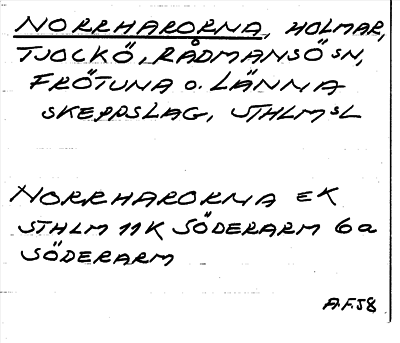 NORRHARORNA, HOLMAR,
TJOCKÖ, RÅDMANSÖ SN,
FRÖTUNA O. LÄNNA
SKEPPSLAG, STHLMSL
NORRHARORNA EK
STHLM 11K SÖDERARM 6a
SÖDERARM
A.F.58